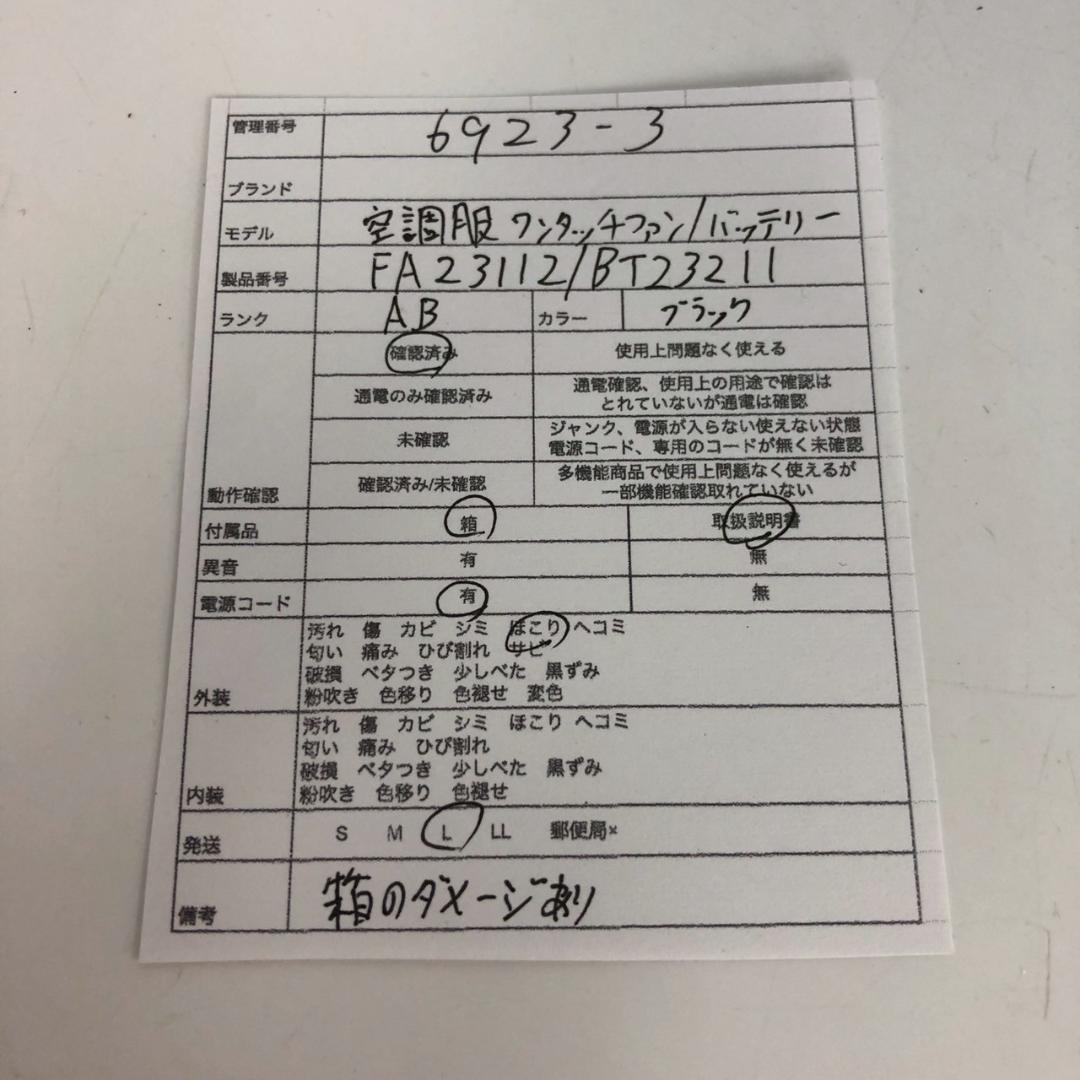 管理番号 6923-3
ブランド
モデル 空調服 ワンタッチファン/バッテリー
製品番号 FA23112/BT23211
ランク AB カラー ブラック
確認済み 使用上問題なく使える
通電のみ確認済み 通電確認、使用上の用途で確認は
とれていないが通電は確認
未確認 ジャンク、電源が入らない使えない状態
電源コード、専用のコードが無く未確認
動作確認 確認済み/未確認 多機能商品で使用上問題なく使えるが
一部機能確認取れていない
付属品 箱 取扱説明書
異音 有 無
電源コード 有 無
汚れ 傷 カビ シミ ほこり ヘコミ
匂い 痛み ひび割れ サビ
破損 ベタつき 少しべた 黒ずみ
外装 粉吹き 色移り 色褪せ 変色
汚れ 傷 カビ シミ ほこり ヘコミ
匂い 痛み ひび割れ
破損 ベタつき 少しべた 黒ずみ
内装 粉吹き 色移り 色褪せ
発送 S M L LL 郵便局×
備考 箱のダメージあり